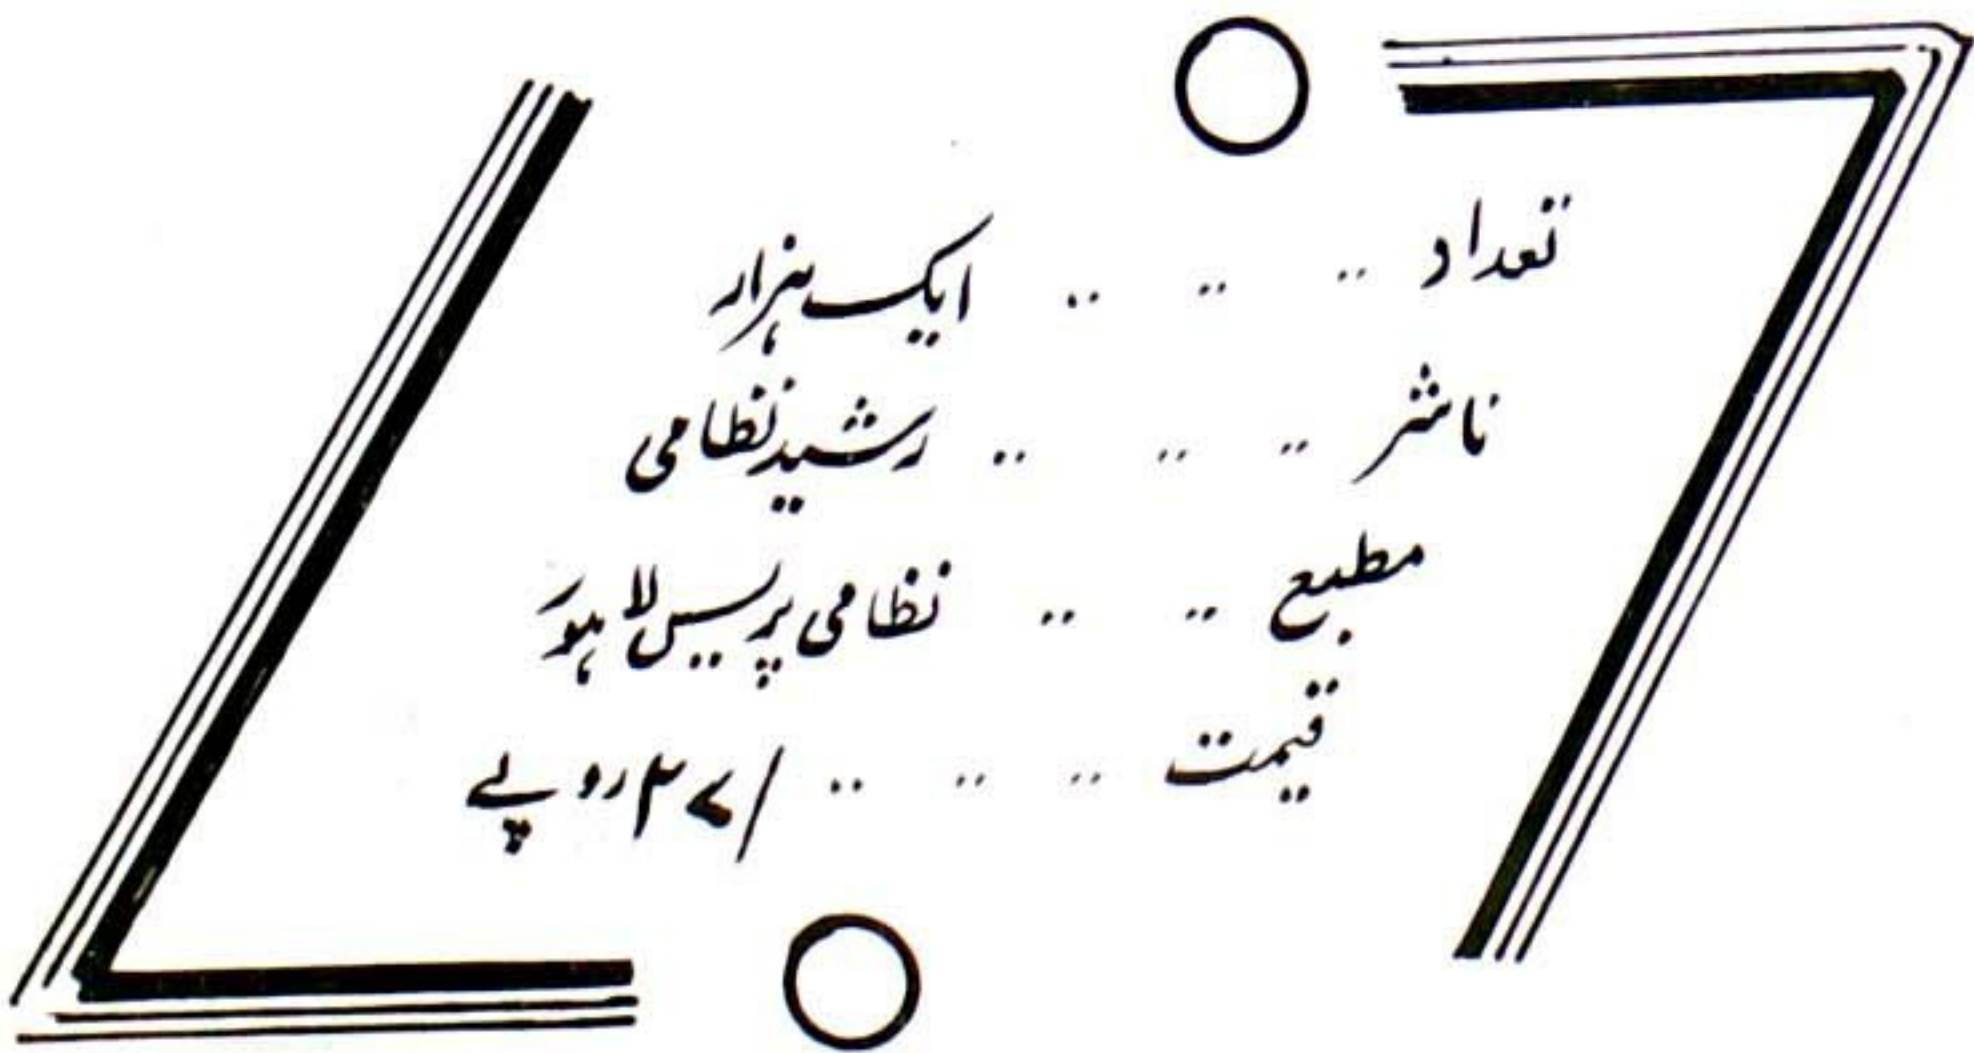 تعداد .. .. .. ایک ہزار
ناشر .. .. .. رشید نظامی
مطبع .. .. نظامی پریس لاہور
قیمت .. .. .. روپے